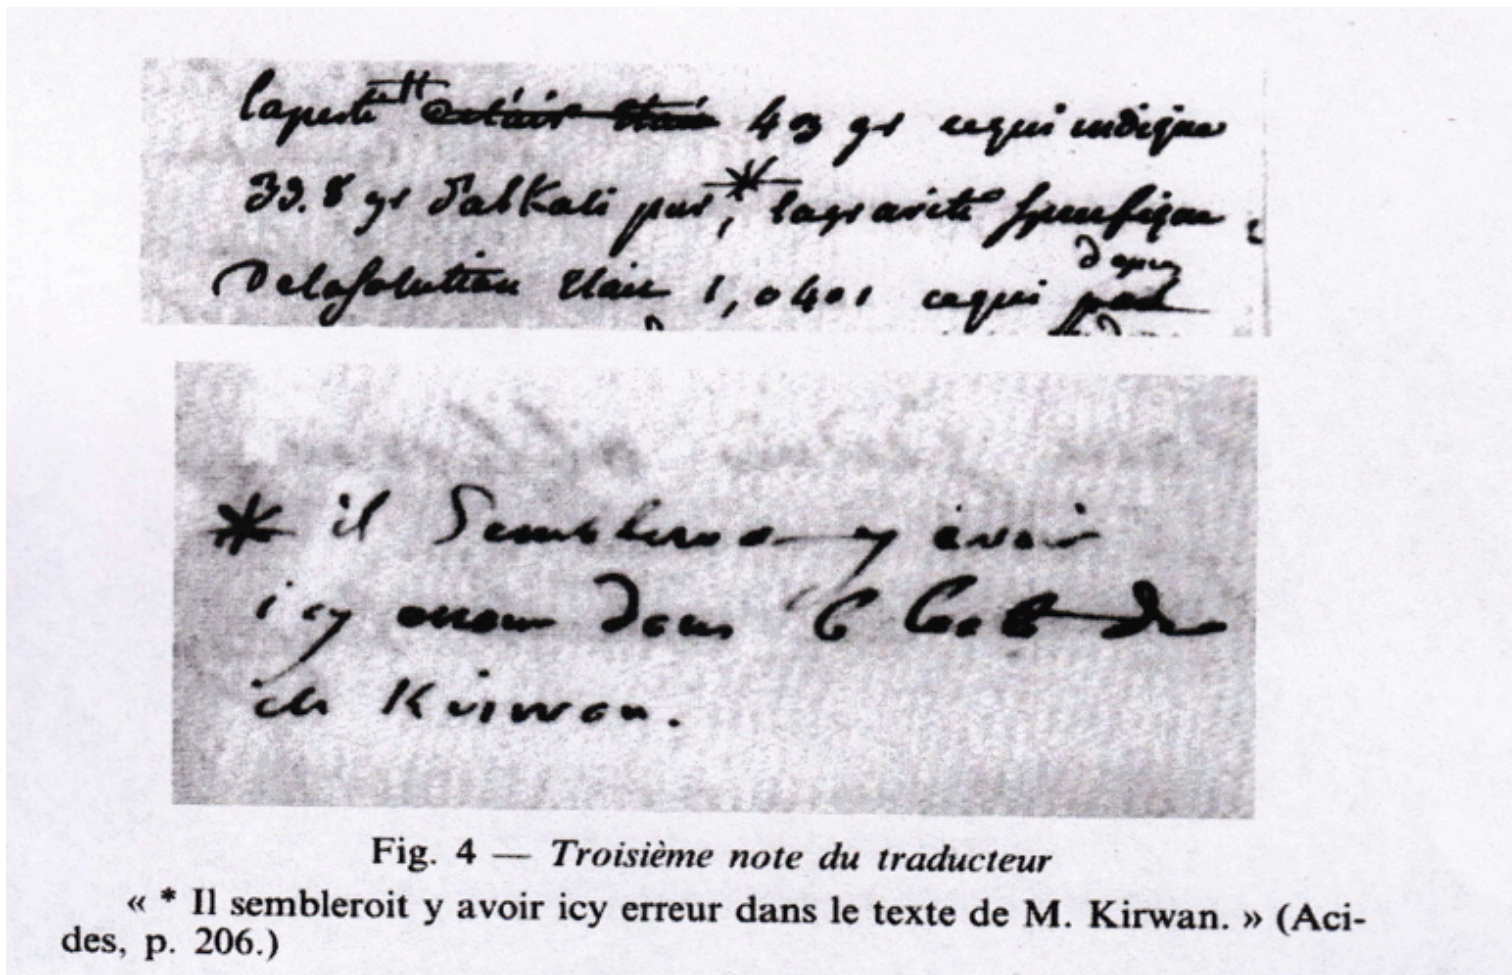 la perte etoit etait 43 gr ce qui indique
39.8 gr d'alkali pur *; la gravité specifique
de la solution etait 1,0401 ce qui d'apres
* il Sembleroit y avoir
icy erreur dans le texte de
M. Kirwan.
Fig. 4 — Troisième note du traducteur
« * Il sembleroit y avoir icy erreur dans le texte de M. Kirwan. » (Aci-
des, p. 206.)